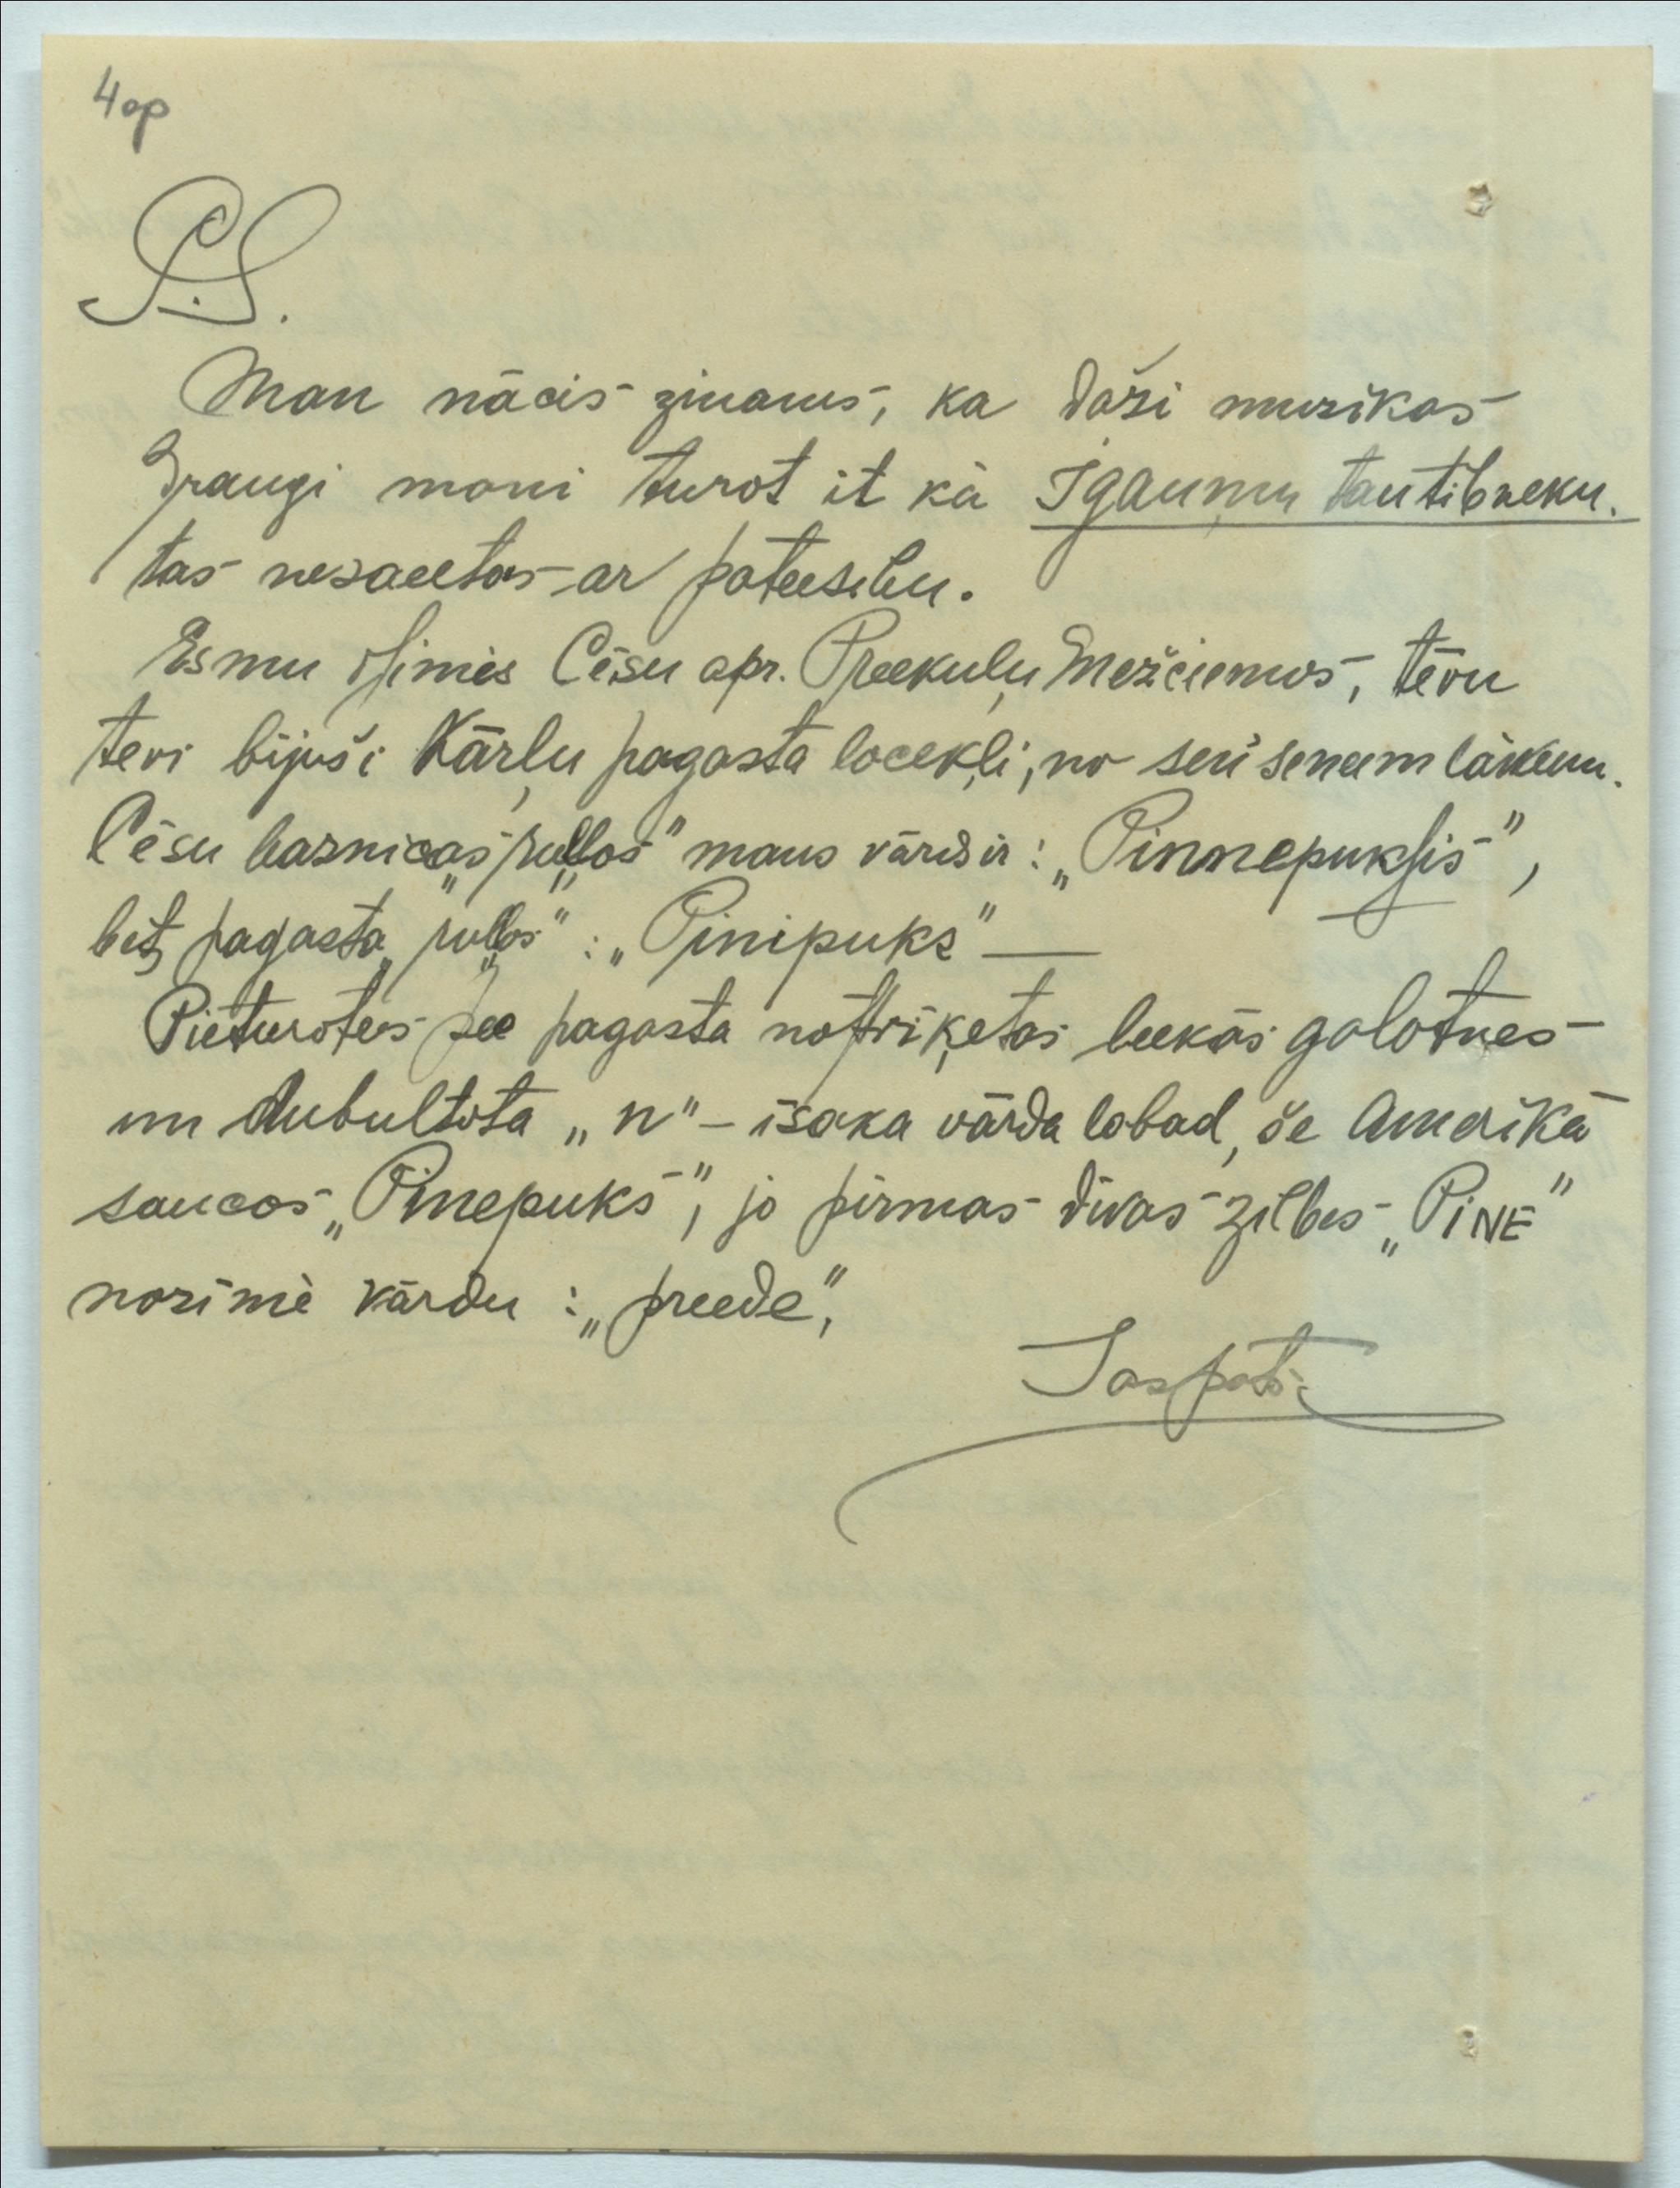 4 op
P.S.
Man nācis zinams, ka daži muzikas
draugi mani turot it kā Igauņu tautibneku.
tas nesaeetas ar pateesibu.
Esmu dzimis Cēsu apr. Preekuļu Mežciemos, tēvu
tevi bijuši Kārļu pagasta locekļi, no sen seneem laikeem.
Cēsu baznicas „ruļļos" mans vārds ir: „Pinnepukſis",
bet pagasta „ruļļos": „Pinipuks"—
Pieturotees pee pagasta noſtriķetas leekās galotnes
un dubultota „n" – isaka vārda labad, še Amerikā
saucos „Pinepuks", jo pirmas divas zilbes „PiNE"
nozimē vārdu: „preede",
Tas pats.